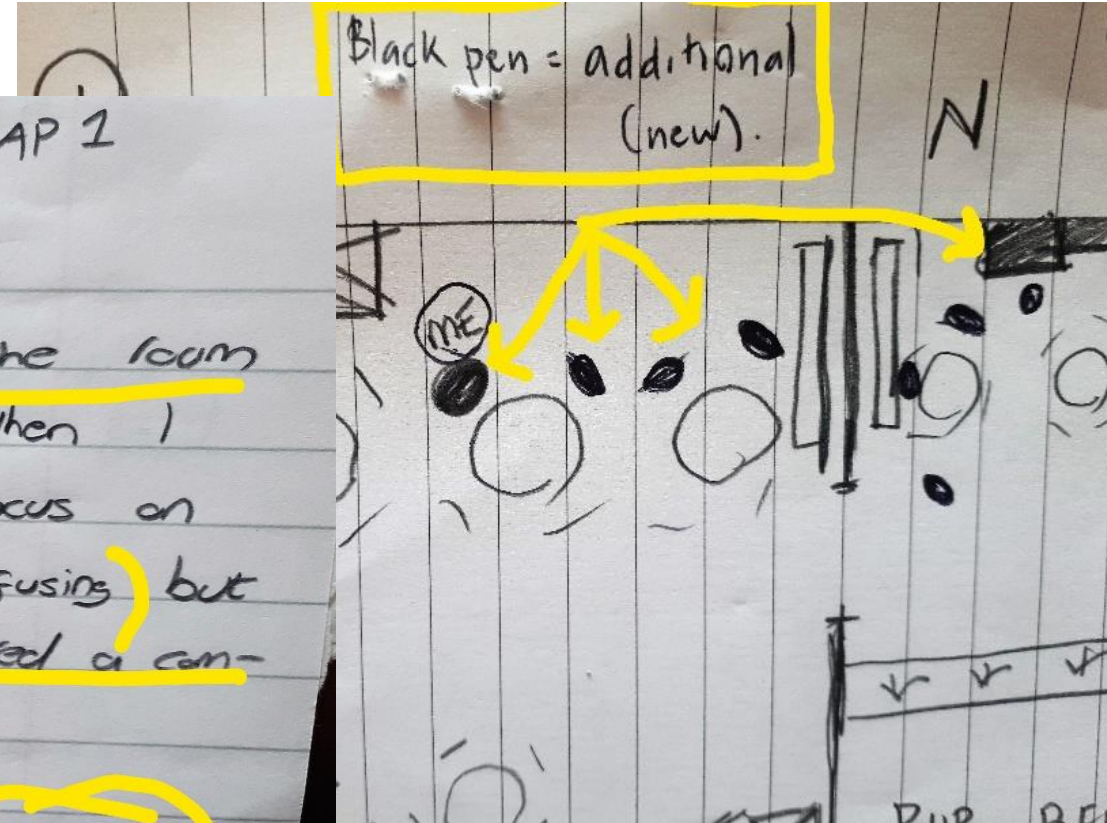 AP 1
he room
then I
cus on
fusing) but
ed a con-
Black pen = additional
(new).
N
ME